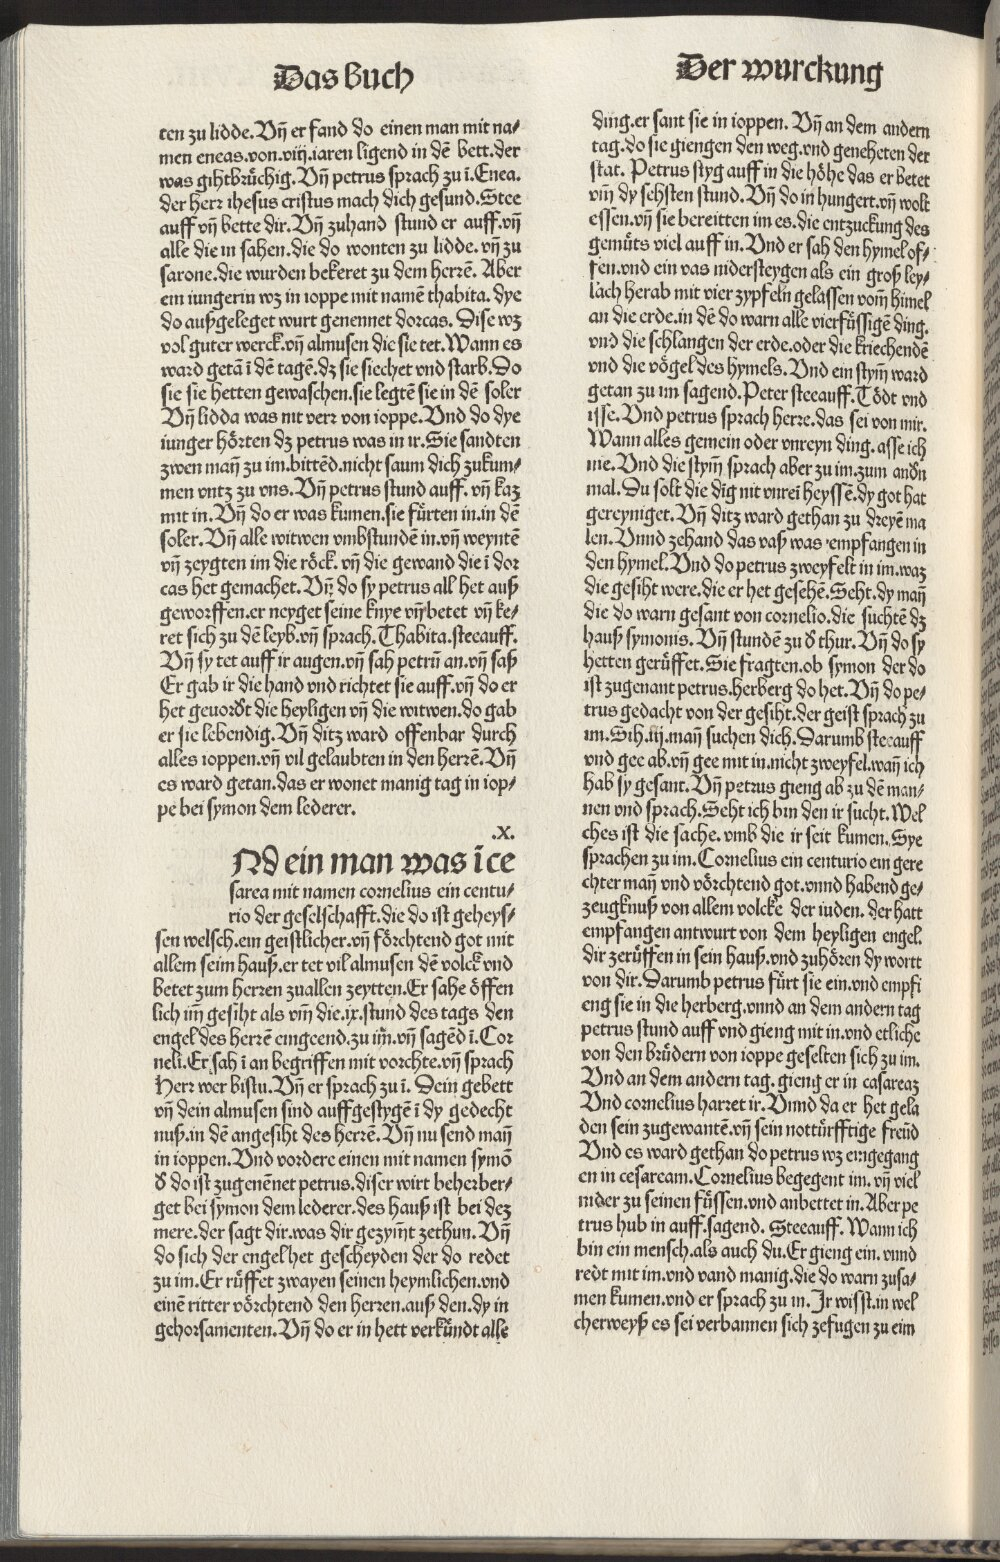 Das Buch
ten zu lidde. Vñ er fand do einen man mit na⸗
men eneas.von.viij.iaren ligend in dē bett.der
was gihtbrüchig. Vñ petrus sprach zu ī. Enea.
der herr ihesus cristus mach dich gesund. Stee
auff vñ bette dir. Vñ zuhand stund er auff.vñ
alle die in sahen.die do wonten zu lidde. vñ zu
sarone.die wurden bekeret zu dem herrē. Aber
ein iungerin wz in ioppe mit namē thabita. dye
do außgeleget wurt genennet dorcas. Dise wz
vol guter werck.vñ almusen die sie tet. Wann es
ward getā ī dē tagē.dz sie siechet vnd starb. Do
sie sie hetten gewaschen.sie legtē sie in dē soler
Vñ lidda was nit verr von ioppe. Vnd do dye
iunger hörten dz petrus was in ir. Sie sandten
zwen mañ zu im.bittēd.nicht saum dich zukum⸗
men vntz zu vns. Vñ petrus stund auff. vñ kaz
mit in. Vñ do er was kumen.sie fürten in.in dē
soler. Vñ alle witwen vmbstundē in.vñ weyntē
vñ zeygten im die röck. vñ die gewand die ī dor
cas het gemachet. Vñ do sy petrus all het auß
geworffen.er neyget seine knye vñ betet vñ ke⸗
ret sich zu dē leyb.vñ sprach. Thabita.steeauff.
Vñ sy tet auff ir augen.vñ sah petrū an.vñ saß
Er gab ir die hand vnd richtet sie auff.vñ do er
het geuordt die heyligen vñ die witwen.do gab
er sie lebendig. Vñ ditz ward offenbar durch
alles ioppen.vñ vil gelaubten in den herrē. Vñ
es ward getan.das er wonet manig tag in iop⸗
pe bei symon dem lederer.
.X.
Nd ein man was ī ce
sarea mit namen cornelius ein centu⸗
rio der geselschafft.die do ist geheys⸗
sen welsch.ein geistlicher.vñ förchtend got mit
allem seim hauß.er tet vil almusen dē volck vnd
betet zum herren zuallen zeytten. Er sahe öffen
lich iñ gesiht als vm̄ die.ix.stund des tags den
engel des herrē eingeend.zu im̄.vñ sagēd ī. Cor
neli. Er sah ī an begriffen mit vorchte.vñ sprach
Herr wer bistu. Vñ er sprach zu ī. Dein gebett
vñ dein almusen sind auffgestygē ī dy gedecht
nuß.in dē angesiht des herrē. Vñ nu send mañ
in ioppen. Vnd vordere einen mit namen symō
d̄ do ist zugenēnet petrus.diser wirt beherber⸗
get bei symon dem lederer.des hauß ist bei dez
mere.der sagt dir.was dir gezym̄t zethun. Vñ
do sich der engel het gescheyden der do redet
zu im. Er rüffet zwayen seinen heymlichen.vnd
einē ritter vörchtend den herren.auß den.dy in
gehorsamenten. Vñ do er in hett verkündt alle
Der wurckung
ding.er sant sie in ioppen. Vñ an dem andern
tag.do sie giengen den weg.vnd geneheten der
stat. Petrus styg auff in die höhe das er betet
vm̄ dy sehsten stund. Vñ do in hungert.vñ wolt
essen.vñ sie bereitten im es.die entzuckung des
gemüts viel auff in. Vnd er sah den hymel of⸗
fen.vnd ein vas nidersteygen als ein groß ley⸗
lach herab mit vier zypfeln gelassen vom̄ himel
an die erde.in dē do warn alle vierfüssigē ding.
vnd die schlangen der erde.oder die kriechendē
vnd die vögel des hymels. Vnd ein stym̄ ward
getan zu im sagend. Peter steeauff. Tödt vnd
isse. Vnd petrus sprach herre.das sei von mir.
Wann alles gemein oder vnreyn ding.asse ich
nie. Vnd die stym̄ sprach aber zu im.zum andn̄
mal. Du solt die dīg nit vnrei heyssē.dy got hat
gereyniget. Vñ ditz ward gethan zu dreyē ma
len. Vnnd zehand das vaß was empfangen in
den hymel. Vnd do petrus zweyfelt in im.waz
die gesiht were.die er het gesehē. Seht.dy mañ
die do warn gesant von cornelio.die suchtē dz
hauß symonis. Vñ stundē zu d̄ thur. Vñ do sy
hetten gerüffet. Sie fragten.ob symon der do
ist zugenant petrus.herberg do het. Vñ do pe⸗
trus gedacht von der gesiht.der geist sprach zu
im. Sih.iij.mañ suchen dich. Darumb steeauff
vnd gee ab.vñ gee mit in.nicht zweyfel.wañ ich
hab sy gesant. Vñ petrus gieng ab zu dē man⸗
nen vnd sprach. Seht ich bin den ir sucht. Wel
ches ist die sache. vmb die ir seit kumen. Sye
sprachen zu im. Cornelius ein centurio ein gere
chter mañ vnd vörchtend got.vnnd habend ge⸗
zeugknuß von allem volcke der iuden. der hatt
empfangen antwurt von dem heyligen engel.
dir zerüffen in sein hauß.vnd zuhören dy wortt
von dir. Darumb petrus fürt sie ein.vnd empfi
eng sie in die herberg.vnnd an dem andern tag
petrus stund auff vnd gieng mit in.vnd etliche
von den brüdern von ioppe geselten sich zu im.
Vnd an dem andern tag.gieng er in casareaz
Vnd cornelius harret ir. Vnnd da er het gela
den sein zugewantē.vñ sein nottürfftige freūd
Vnd es ward gethan do petrus wz eingegang
en in cesaream. Cornelius begegent im. vñ viel
nider zu seinen füssen.vnd anbettet in. Aber pe
trus hub in auff.sagend. Steeauff. Wann ich
bin ein mensch.als auch du. Er gieng ein. vnnd
redt mit im.vnd vand manig.die do warn zusa⸗
men kumen.vnd er sprach zu in. Jr wisst.in wel
cherweyß es sei verbannen sich zefugen zu eim